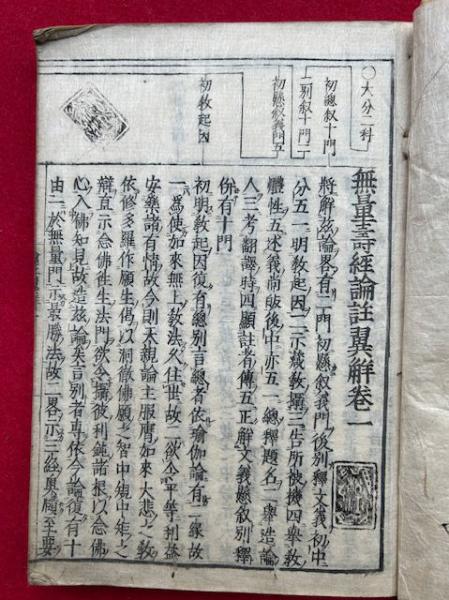 〇大分二科
初總敘十門
上別敘十門二
初懸敘義門五
初教起因
無量壽經論註翼解卷一
將解茲論畧有二門初懸敘義門後別釋文義初中
分五一明教起因二示藏教攝三告所被機四舉教
體性五述義前皈後中亦五一總釋題名二舉造論
人三考翻譯時四顯註者傳五正解文義懸敘別釋
份有十門
初明教起因復有總別言總者依瑜伽論有二緣故
一爲使如來無上教法久住世故二欲令平等利益
安樂諸有情故今則天親論主服膺如來大悲之教
依修多羅作願生偈以洞徹佛願之智中規中矩之
辯直示念佛徃生法門欲令攝彼利鈍諸根以念佛
心入佛知見故造茲論矣言別者專依今論復有十
由一於無量門示最勝法故二畧示三經奧至要